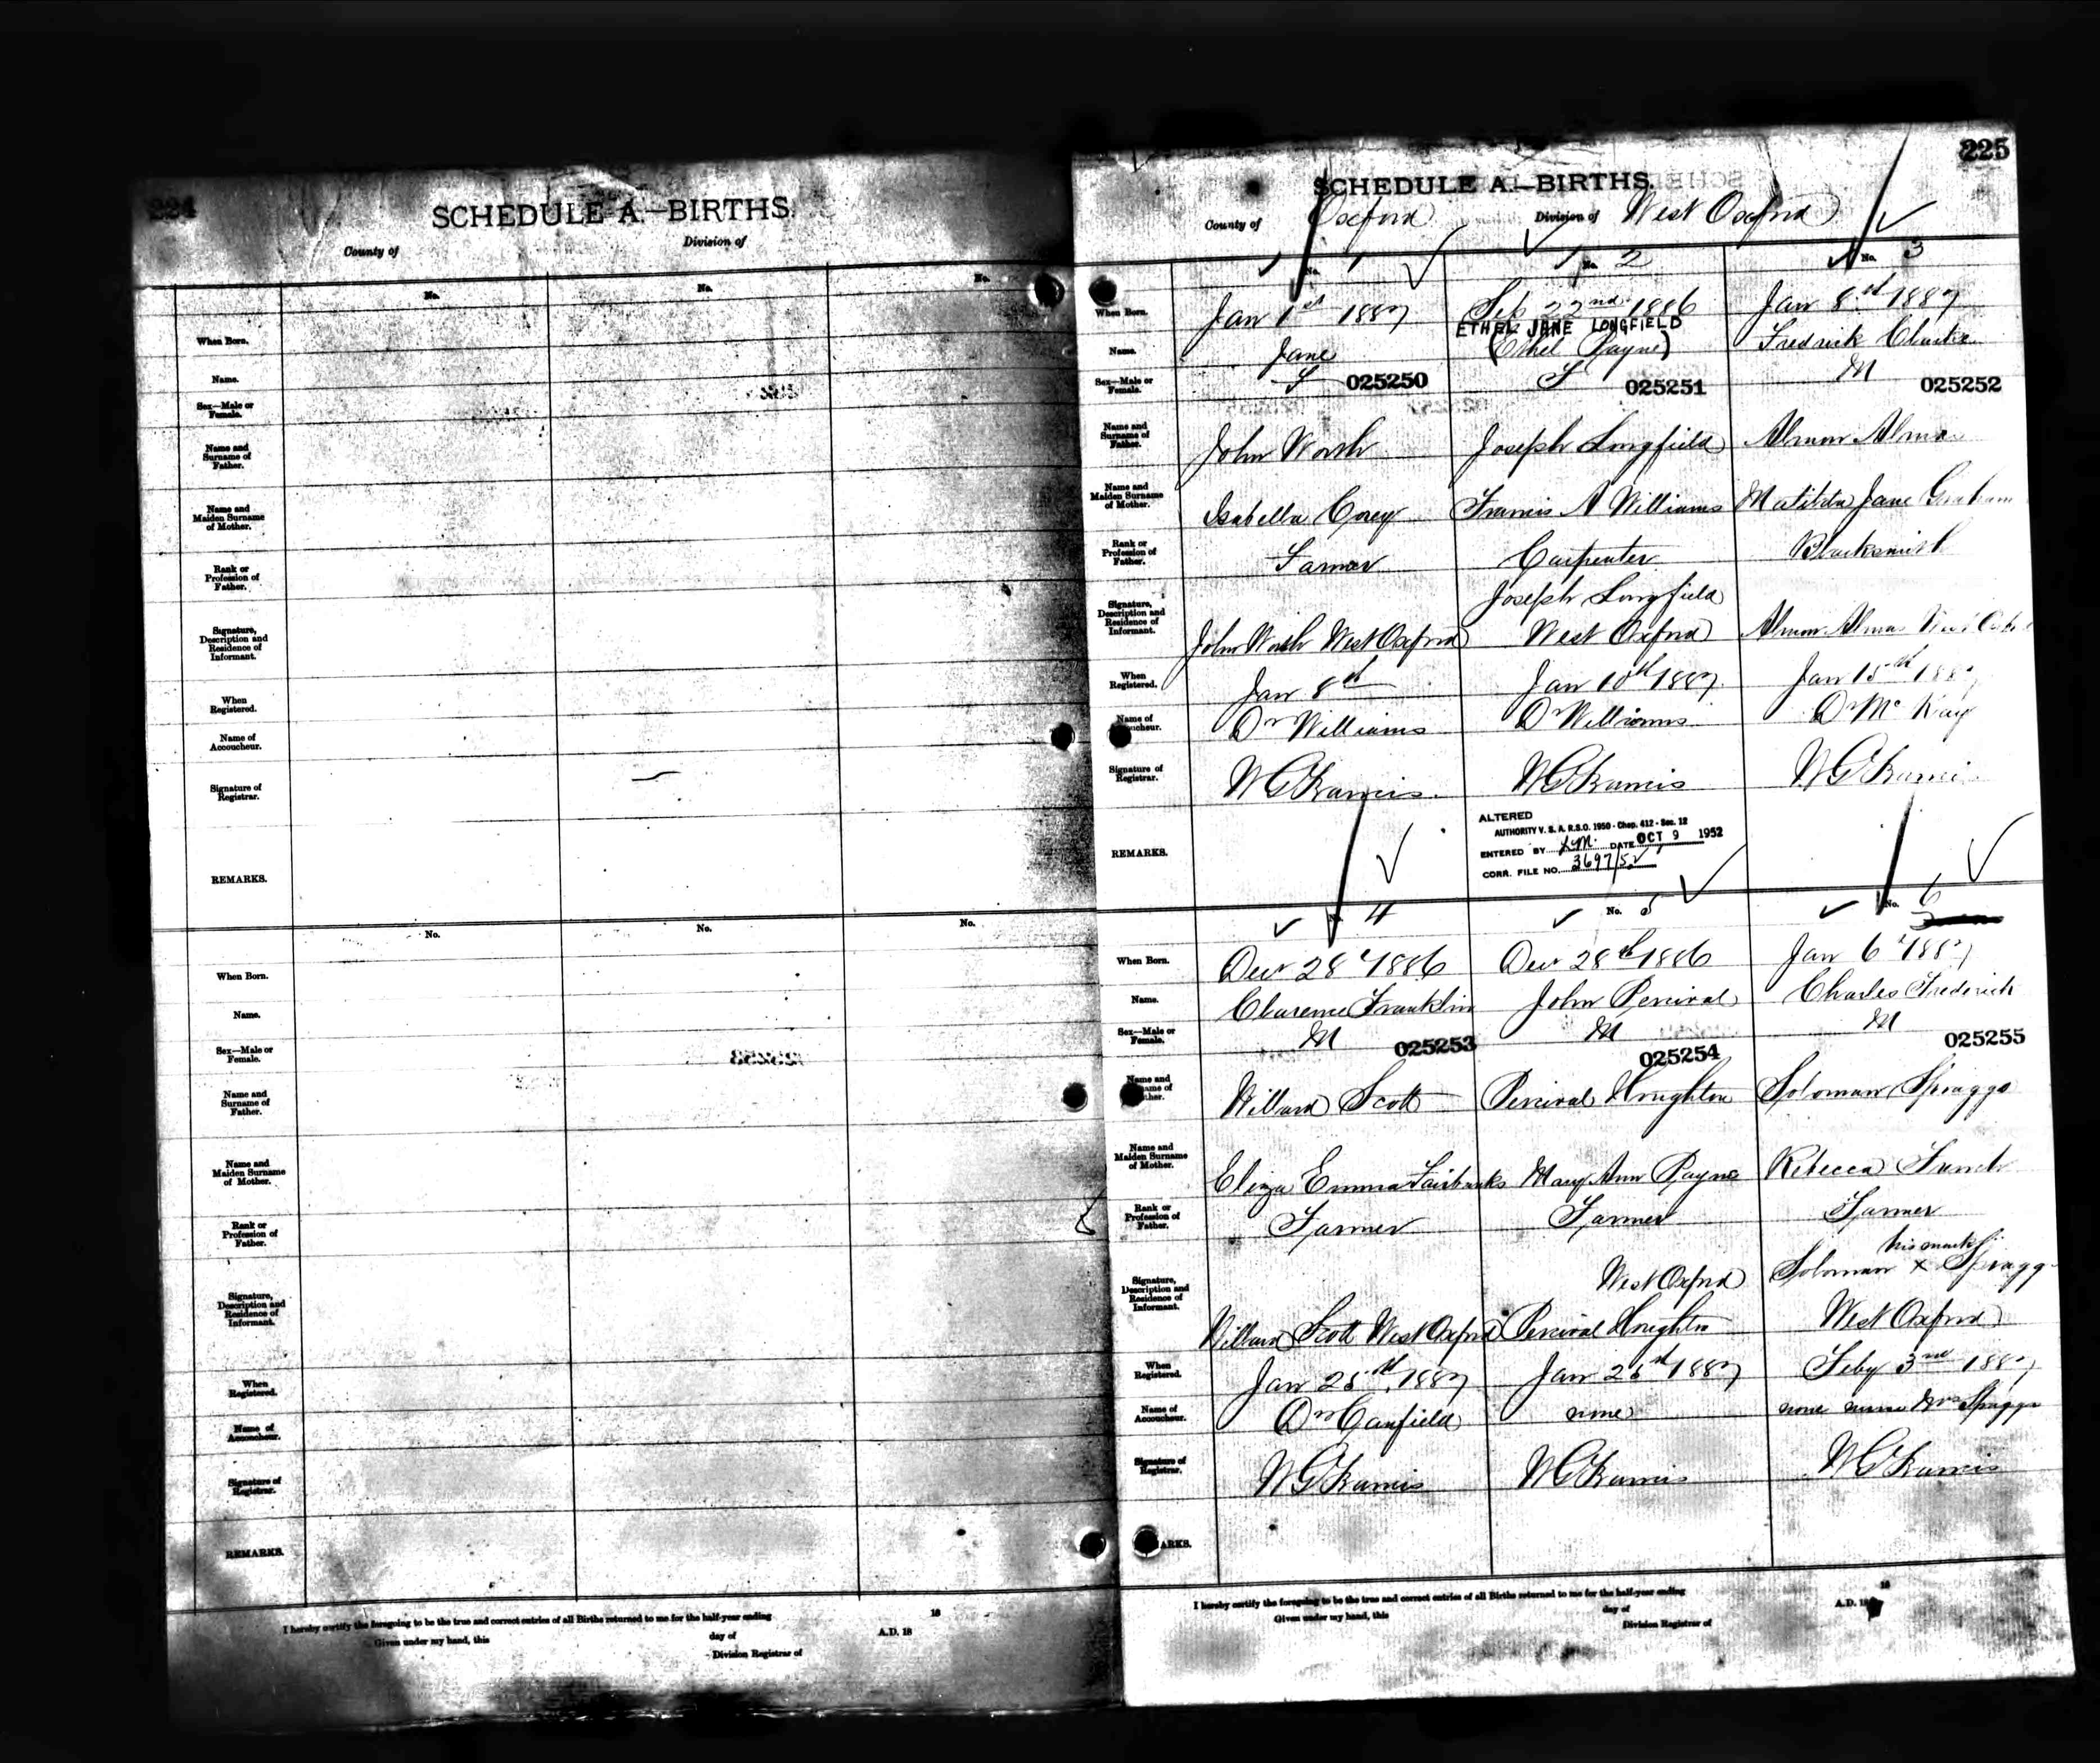 224
SCHEDULE A.—BIRTHS.
County of
Division of
No.
No.
No.
When Born.
Name.
Sex—Male or
Female.
Name and
Surname of
Father.
Name and
Maiden Surname
of Mother.
Rank or
Profession of
Father.
Signature,
Description and
Residence of
Informant.
When
Registered.
Name of
Accoucheur.
Signature of
Registrar.
REMARKS.
No.
No.
No.
When Born.
Name.
Sex—Male or
Female.
Name and
Surname of
Father.
Name and
Maiden Surname
of Mother.
Rank or
Profession of
Father.
Signature,
Description and
Residence of
Informant.
When
Registered.
Name of
Accoucheur.
Signature of
Registrar.
REMARKS.
I hereby certify the foregoing to be the true and correct entries of all Births returned to me for the half-year ending 18
Given under my hand, this day of A.D. 18
Division Registrar of
225
SCHEDULE A.—BIRTHS.
County of Oxford Division of West Oxford
No. 1 No. 2 No. 3
When Born. Jan 1st 1887 Sep 22nd 1886 Jan 8th 1887
ETHEL JANE LONGFIELD
Name. Jane (Ethel Payne) Fredrick
Sex—Male or Female. F 025250 F 025251 M 025252
Name and Surname of Father. John Worth Joseph Longfield Almon
Name and Maiden Surname of Mother. Isabella Corey Francis A Williams Matilda Jane Graham
Rank or Profession of Father. Farmer Carpenter Blacksmith
Signature, Description and Residence of Informant. John Worth West Oxford Joseph Longfield West Oxford Almon
When Registered. Jan 8th Jan 10th 1887 Jan 15th 1887
Name of Accoucheur. Dr Williams Dr Williams Dr McKay
Signature of Registrar. W G Francis W G Francis W G Francis
REMARKS.
ALTERED
AUTHORITY V. S. A. R.S.O. 1950 - Chap. 412 - Sec. 12
ENTERED BY DATE OCT 9 1952
CORR. FILE NO. 3697/52
No. 4 No. 5 No. 6
When Born. Dec 28th 1886 Dec 28th 1886 Jan 6th 1887
Name. Clarence Franklin John Percival Charles Frederick
Sex—Male or Female. M 025253 M 025254 M 025255
Name and Surname of Father. Willard Scott Percival Houghton Soloman Spraggs
Name and Maiden Surname of Mother. Eliza Emma Fairbanks Mary Ann Payne Rebecca
Rank or Profession of Father. Farmer Farmer Farmer
his mark
Signature, Description and Residence of Informant. Willard Scott West Oxford West Oxford Percival Houghton Soloman x Spragg West Oxford
When Registered. Jan 25th 1887 Jan 25th 1887 Feby 3rd 1887
Name of Accoucheur. Dr Canfield none none nurse Mrs Spraggs
Signature of Registrar. W G Francis W G Francis W G Francis
REMARKS.
I hereby certify the foregoing to be the true and correct entries of all Births returned to me for the half-year ending 18
Given under my hand, this day of A.D. 18
Division Registrar of